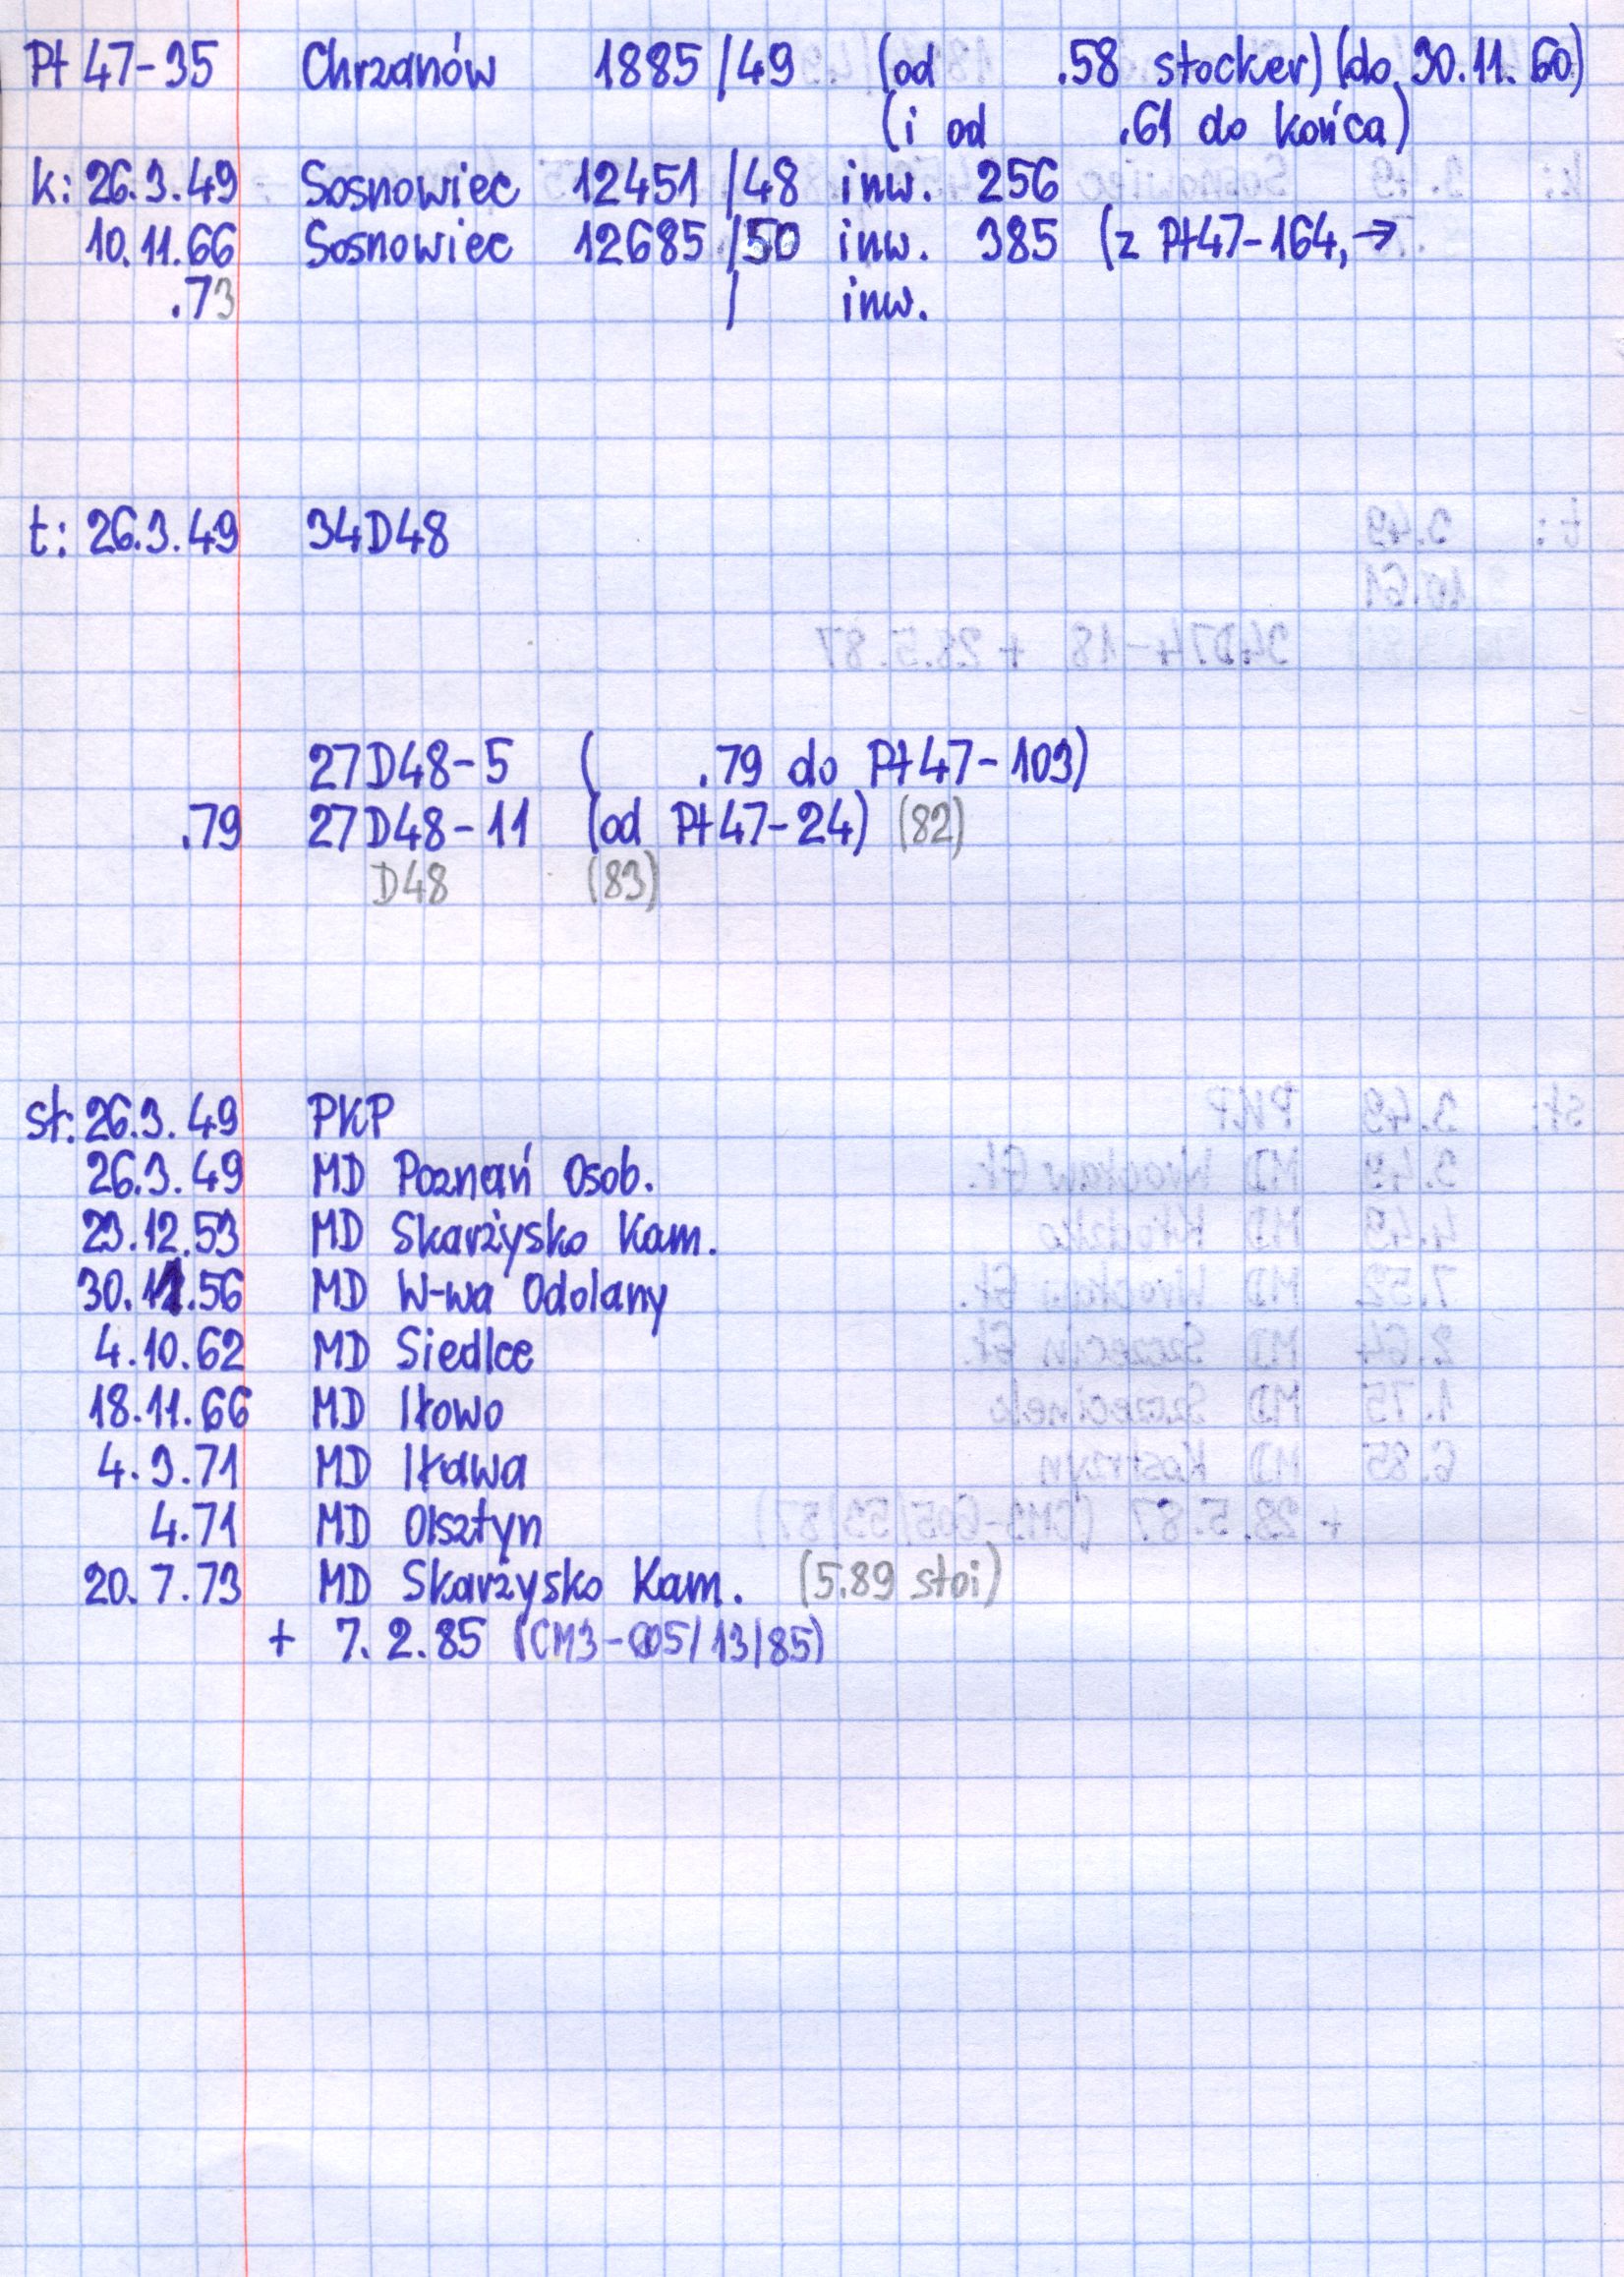 Pt 47-35 Chrzanów 1885/49 (od .58 stocker) (do 30.11.60)
(i od .61 do końca)
k: 26.3.49 Sosnowiec 12451/48 inw. 256
10.11.66 Sosnowiec 12685/50 inw. 385 (z Pt47-164, →
.73 / inw.
t: 26.3.49 34D48
27D48-5 ( .79 do Pt47-103)
.79 27D48-11 (od Pt47-24) (82)
D48 (83)
st: 26.3.49 PKP
26.3.49 MD Poznań Osob.
23.12.53 MD Skarżysko Kam.
30.11.56 MD W-wa Odolany
4.10.62 MD Siedlce
18.11.66 MD Iłowo
4.3.71 MD Iława
4.71 MD Olsztyn
20.7.73 MD Skarżysko Kam. (5.89 stoi)
+ 7.2.85 (CM3-605/13/85)